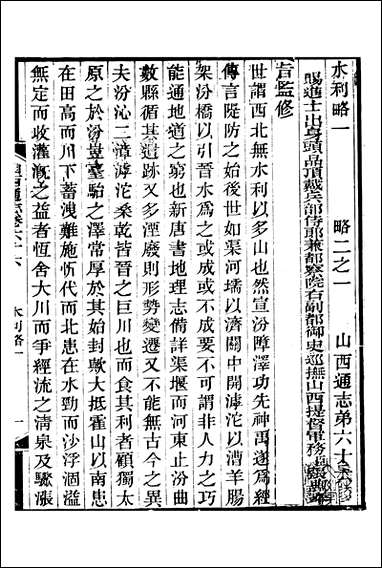 水利略一　略二之一　山西通志第六十
賜進士出身頭品頂戴兵部侍郎兼都察院右副都御史巡撫山西提督軍務
旨監修
世謂西北無水利以多山也然宣汾障澤功先神禹遂爲經
傳言隄防之始後世如渠河壖以濟關中開滹沱以漕羊腸
架汾橋以引晉水爲之或成或不成要不可謂非人力之巧
能通地道之窮也新唐書地理志備詳渠堰而河東止汾曲
數縣循其遺跡又多湮廢則形勢變遷又不能無古今之異
夫汾沁二漳滹沱桑乾皆晉之巨川也而食其利者顧獨太
原之於汾豈臺駘之澤常厚於其始封歟大抵霍山以南患
在田高而川下蓄洩難施忻代而北患在水勁而沙浮涸溢
無定而收灌漑之益者恆舍大川而爭經流之淸泉及驟漲
水利略一
一